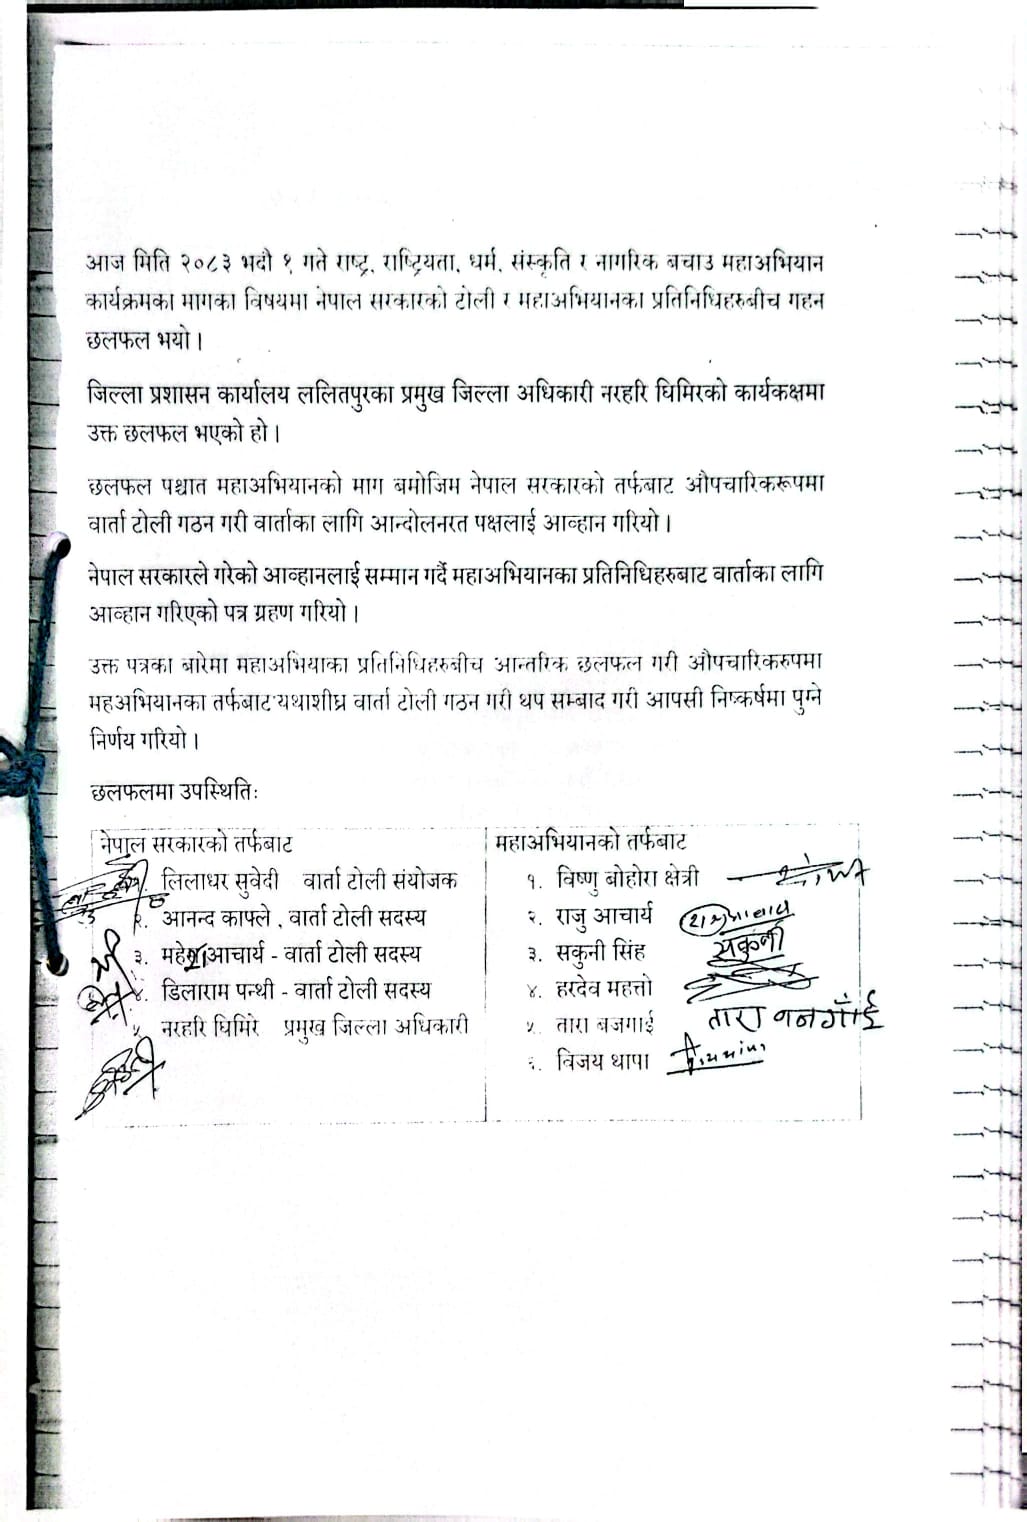 आज मिति २०८३ भदौ १ गते राष्ट्र, राष्ट्रियता, धर्म, संस्कृति र नागरिक बचाउ महाअभियान
कार्यक्रमका मागका विषयमा नेपाल सरकारको टोली र महाअभियानका प्रतिनिधिहरुबीच गहन
छलफल भयो ।
जिल्ला प्रशासन कार्यालय ललितपुरका प्रमुख जिल्ला अधिकारी नरहरि घिमिरको कार्यकक्षमा
उक्त छलफल भएको हो ।
छलफल पश्चात महाअभियानको माग बमोजिम नेपाल सरकारको तर्फबाट औपचारिकरूपमा
वार्ता टोली गठन गरी वार्ताका लागि आन्दोलनरत पक्षलाई आव्हान गरियो ।
नेपाल सरकारले गरेको आव्हानलाई सम्मान गर्दै महाअभियानका प्रतिनिधिहरुबाट वार्ताका लागि
आव्हान गरिएको पत्र ग्रहण गरियो ।
उक्त पत्रका बारेमा महाअभियाका प्रतिनिधिहरुबीच आन्तरिक छलफल गरी औपचारिकरुपमा
महअभियानका तर्फबाट यथाशीघ्र वार्ता टोली गठन गरी थप सम्बाद गरी आपसी निष्कर्षमा पुग्ने
निर्णय गरियो ।
छलफलमा उपस्थितिः
नेपाल सरकारको तर्फबाट
लिलाधर सुवेदी वार्ता टोली संयोजक
२. आनन्द काफ्ले , वार्ता टोली सदस्य
३. महेश आचार्य - वार्ता टोली सदस्य
४. डिलाराम पन्थी - वार्ता टोली सदस्य
५ नरहरि घिमिरे प्रमुख जिल्ला अधिकारी
महाअभियानको तर्फबाट
१. विष्णु बोहोरा क्षेत्री
२. राजु आचार्य राजु आचार्य
३. सकुनी सिंह सकुनी
४. हरदेव महत्तो
५. तारा बजगाई तारा बजगाँई
६. विजय थापा